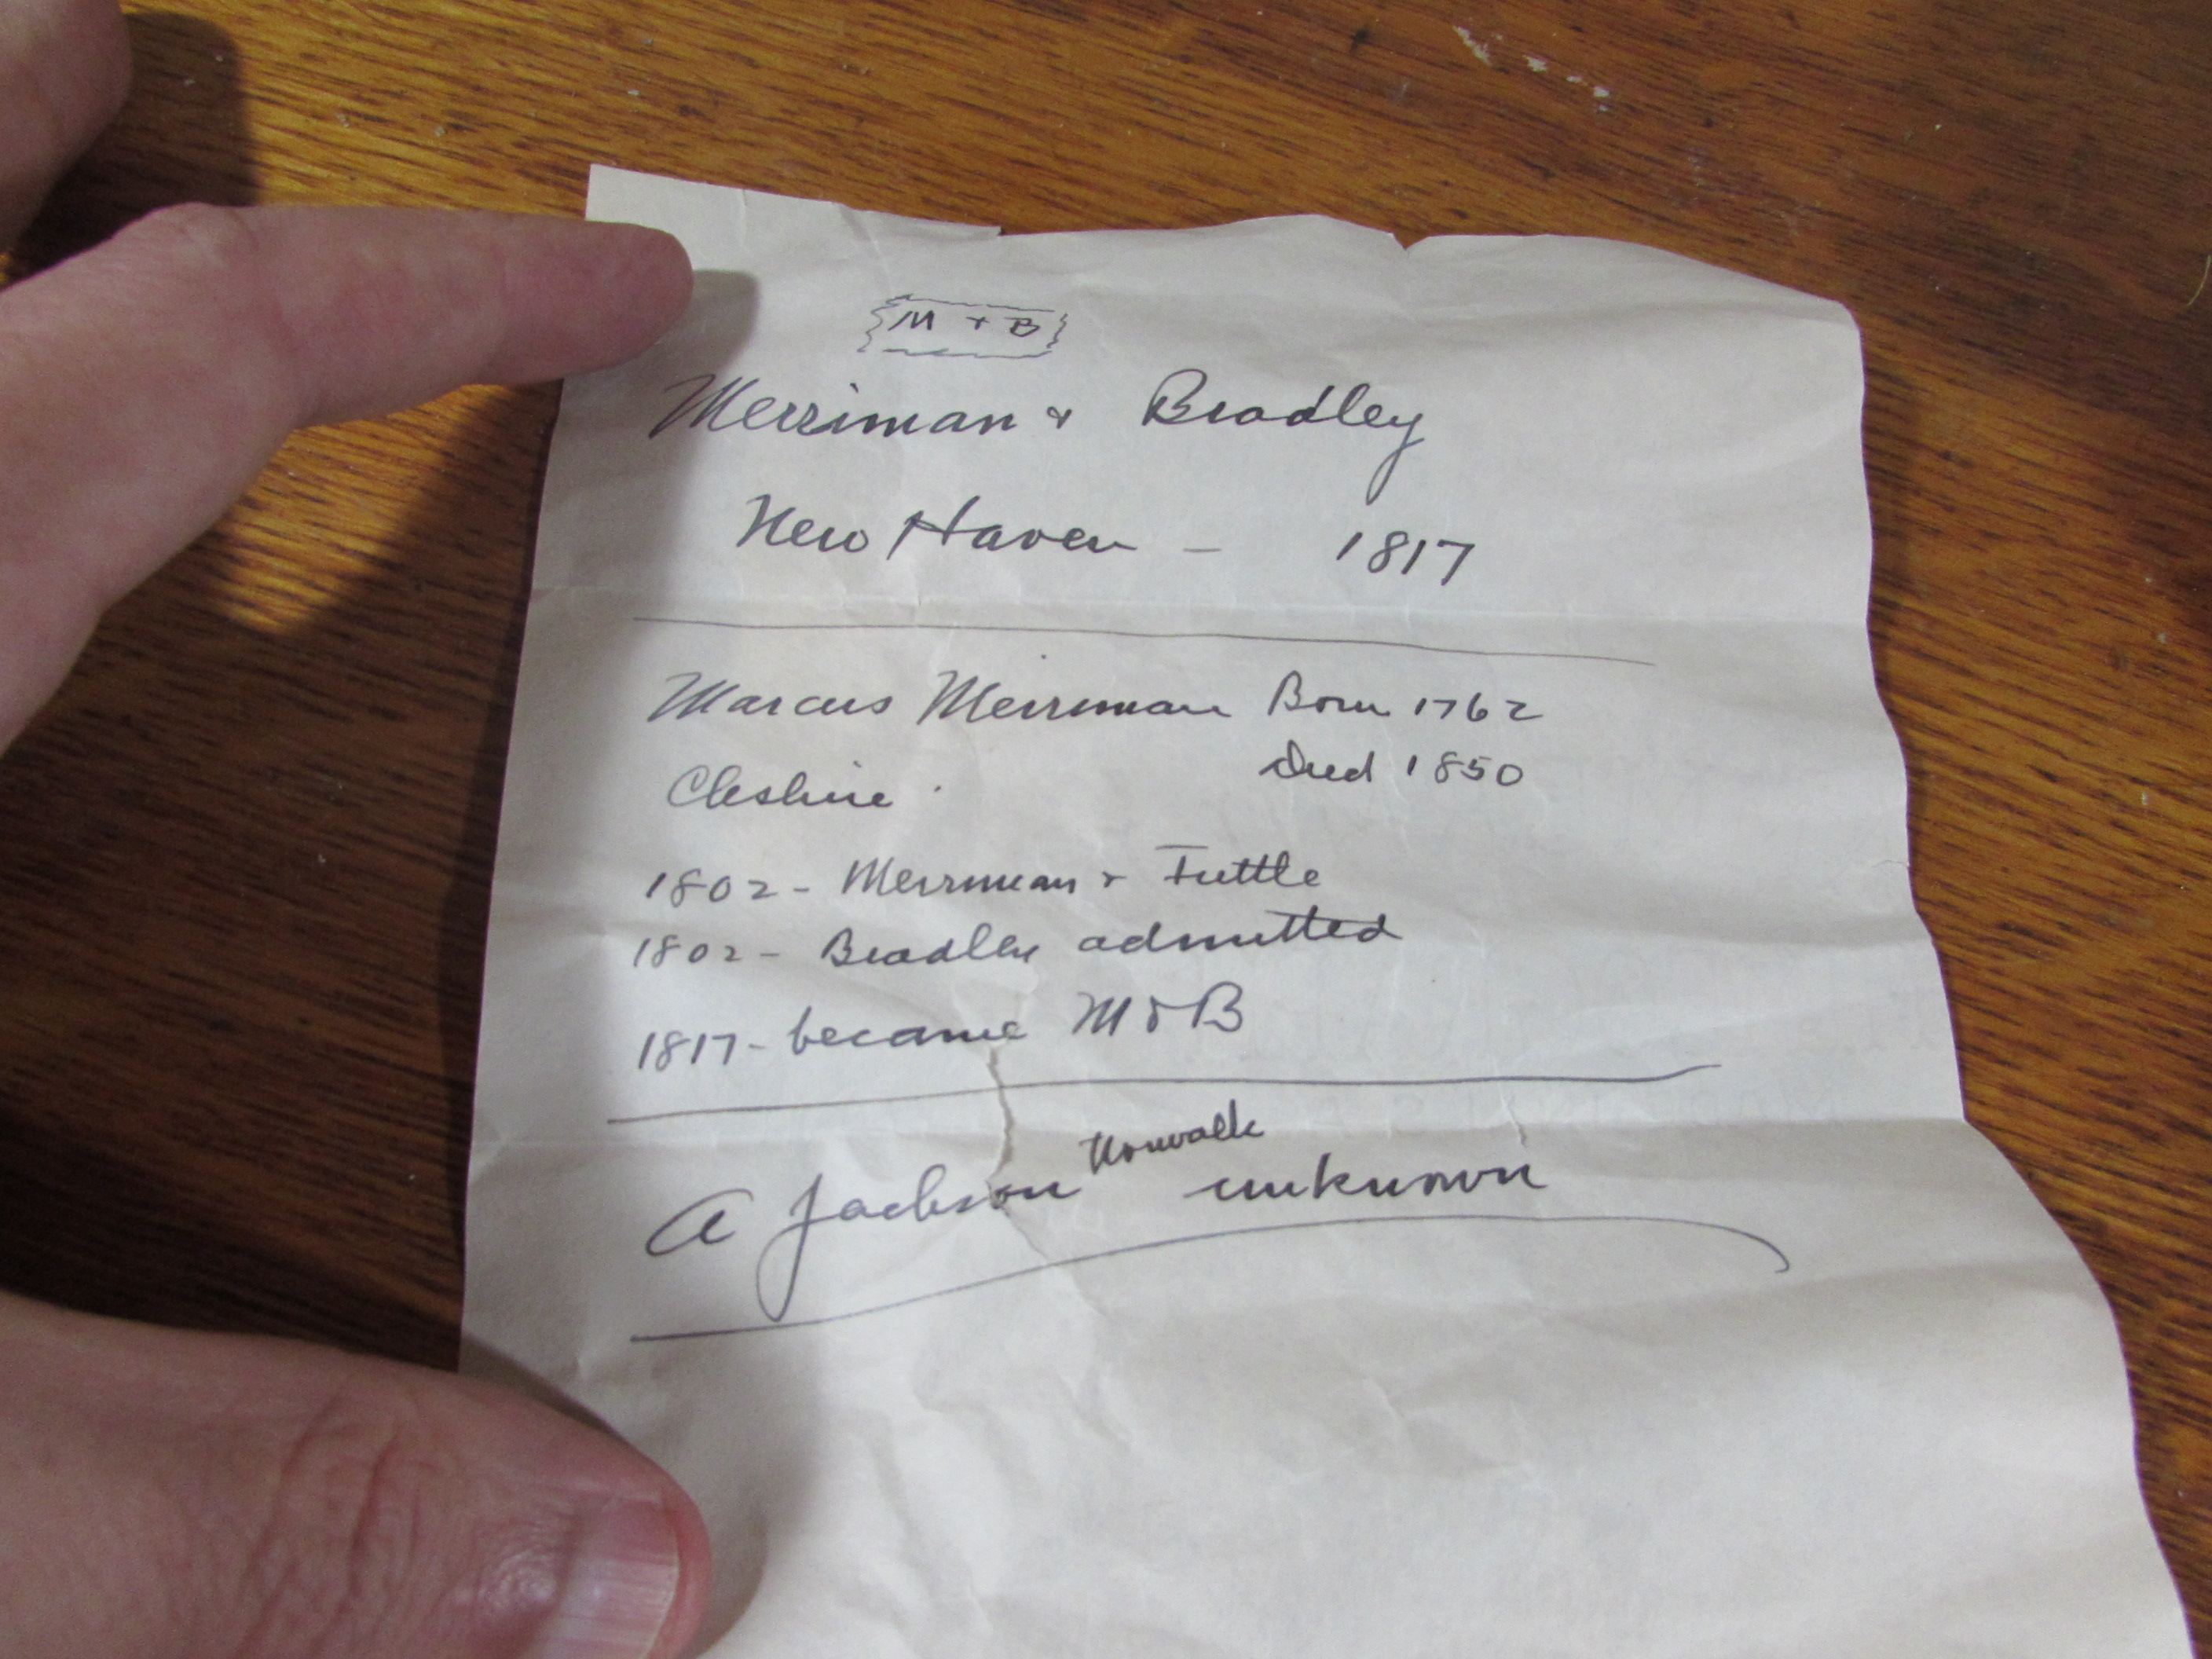 M + B
Merriman & Bradley
New Haven - 1817
Marcus Merriman Born 1762
Died 1850
Cheshire
1802 - Merriman & Tuttle
1802 - Bradley admitted
1817 - became M & B
Norwalk
A Jackson unknown